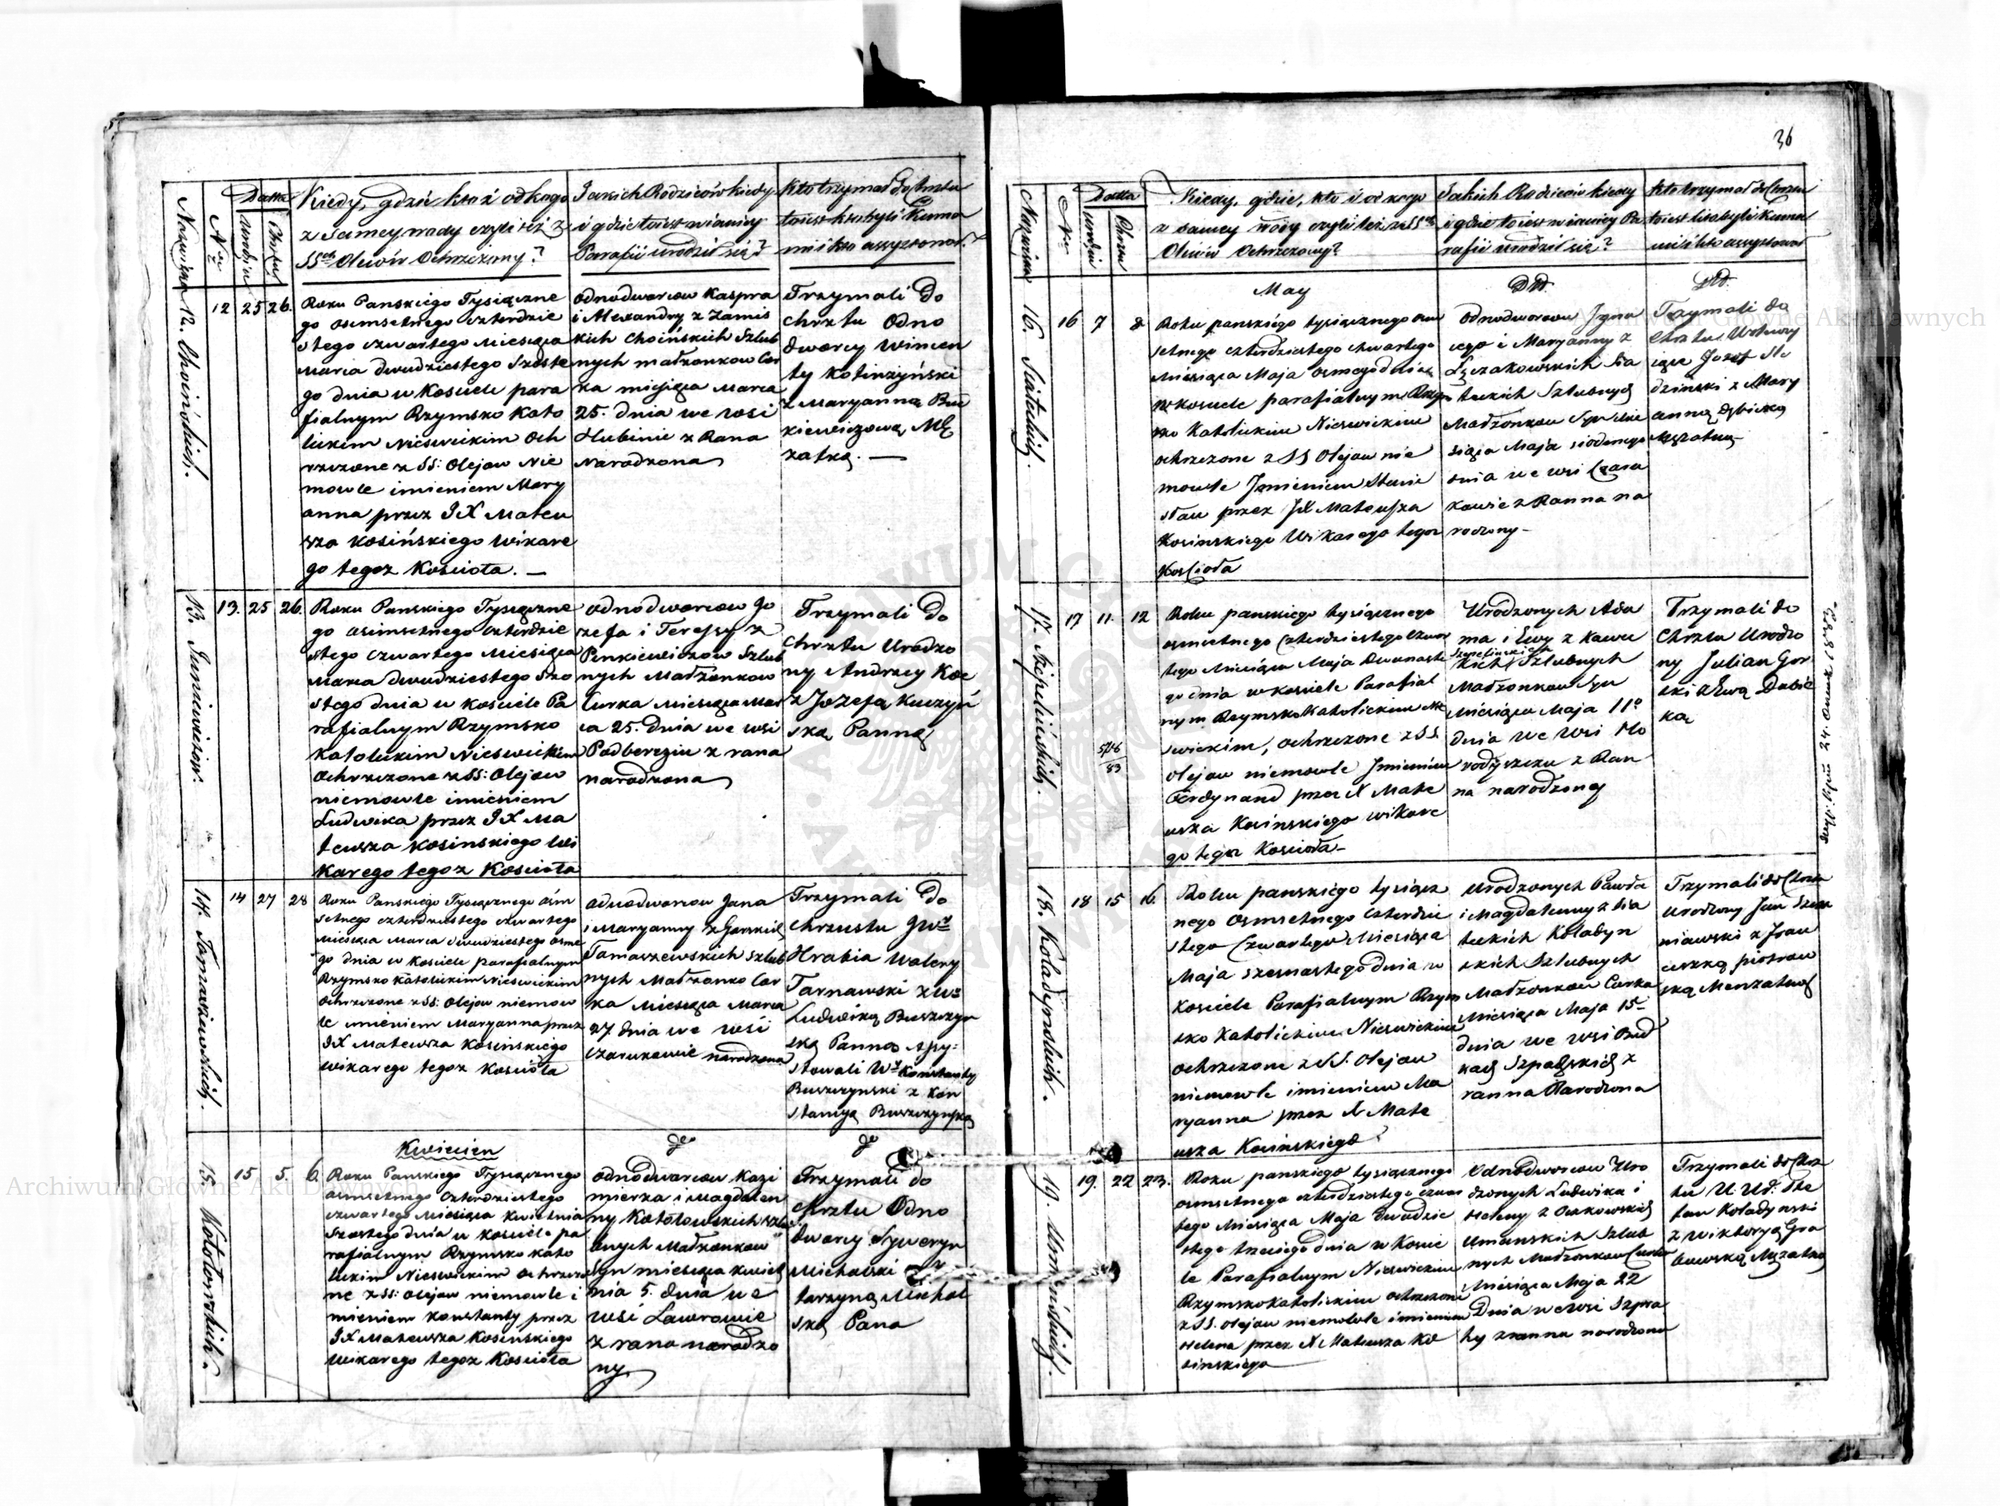 36
Nazwisko
Nro
Datta
Urodzin
Chrztu
Kiedy, gdzie kto i od kogo
z samey wody czyli też z
SSch Olejów Ochrzczony?
Jakich Rodziców kiedy
i gdzie to jest w iakiey
Parafii urodził się?
Kto trzymał do Chrztu
to iest kto byli Kumo
mi i kto assystował?
12. Choińskich.
12
25
26.
Roku Panskiego Tysiączne
go osimsetnego czterdzie
stego czwartego Miesiąca
Marca dwudziestego Szoste
go dnia w Kosciele para
fialnym Rzymsko Kato
lickim Nieswieżkim Och
rzczone z SS: Olejow Nie
mowle imieniem Mary
anna przez JX Mateu
sza Kosińskiego Wikare
go tegoz Kosciota. —
odnodworcow Kaspra
i Alexandry z Zamis
kich Choińskich Szlub
nych małżonkow Cor
ka miesiąca Marca
25. dnia we wsi
Hubinie z Rana
Narodzona
Trzymali do
chrztu Odno
dworcy Wincen
ty Kotinzyński
z Maryanną Bu
kiewiczową Mę
zatką. —
13. Juniewiczow.
13.
25
26.
Roku Panskiego Tysiączne
go osimsetnego czterdzie
stego czwartego Miesiąca
Marca dwudziestego Szo
stego dnia w Kościele Pa
rafialnym Rzymsko
Katolickim Nieswieżkim
Ochrzczone z SS: Olejow
niemowle imieniem
Ludwika przez JX Ma
teusza Kosinskiego Wi
karego tegoz Kościota
odnodworcow Jo
zefa i Teressy z
Penkiewiczow Szlub
nych Małżonkow
Curka Miesiąca Mar
ca 25. Dnia we wsi
Padberezju z rana
narodzona
Trzymali Do
Chrztu Urodzo
ny Andrzey Koc
z Jozefą Kuczyń
ską Panną
14. Tomaszewskich.
14
27
28
Roku Panskiego Tysiącznego osim
setnego czterdziestego czwartego
Miesiąca Marca dwudziestego osme
go dnia w Kosciele parafialnym
Rzymsko Katolickim Nieswieżkim
Ochrzczone z SS: Olejow niemow
le imieniem Maryanna przez
JX Mateusza Kosińskiego
wikarego tegoz Kosciota
odnodworcow Jana
i Maryanny z Gorskich
Tamaszewskich szlub
nych Małżonko Cor
ka Miesiąca Marca
27 dnia we wsi
Czarukowie narodzona
Trzymali Do
Chrzestu JWny
Hrabia Walery
Tarnawski z Wą
Ludwiką Buszczyn
ską Panną Assy:
stowali Wny Konstanty
Buszczynski z Kon
stancyą Buszczynską
15. Kototowskich.
15
5.
6.
Kwiecien
Roku Panskiego Tysiącznego
osimsetnego Czterdziestego
czwartego Miesiąca Kwietnia
Szostego dnia w kosciele pa
rafialnym Rzymsko Kato
lickim Nieswieżkim Ochrzczo
ne z SS: Olejow niemowle i
mieniem Konstanty przez
JX Mateusza Kosińskiego
Wikarego tegoz Kosciota
odnodworcow Kazi
mierza i Magdalen
ny Kototowskich szlu
bnych Małżonkow
syn miesiąca kwiet
nia 5. dnia we
wsi Lawrowie
z rana narodzo
ny
Trzymali do
Chrztu Odno
dworcy Seweryn
Michalski z Ka
tarzyną Michal
ską Pana
Nazwisko
Nro
Datta
Urodzin
Chrztu
Kiedy, gdzie, kto i od kogo
z samey wody czyli też z SSch
Olejów Ochrzczony?
Jakich Rodziców kiedy
i gdzie to iest w iakiey Pa
rafii urodził się?
kto trzymał do Chrztu
to iest kto byli Kuma
mi i kto assystował
16.
16
7
8
May
Roku panskiego tysiącznego osim
setnego czterdziestego czwartego
Miesiąca Maja osmego dnia
w Kosciele parafialnym Rzym
sko Katolickim Nieswieżkim
ochrzczone z SS Olejow nie
mowle Jmieniem Stanis
ław przez JX Mateusza
Kosinskiego Wikarego tegoz
Kosciota
odnodworcow Igna
cego i Maryanny z
Szlubnych
Małżonkow Syn Mie
siąca Maja siodmego
dnia we wsi Czaru
kowie z Ranna na
rodzony —
Trzymali do
Chrztu
Jozef
dziński z Mary
anną Dębicką
Mężatką —
17.
17
11.
12
Roku panskiego tysiącznego
osimsetnego Czterdziestego Czwar
tego Miesiąca Maja Dwunaste
go dnia w Kosciele Parafial
nym Rzymsko Katolickim Nie
swieżkim, ochrzczone z SS
olejow niemowle Jmieniem
Ferdynand przez X Mate
usza Kosińskiego wikare
go tegoz Kosciota —
Urodzonych Ada
ma i Ewy z Kawe
Szlubnych
Małżonkow Syn
Miesiąca Maja 11o
dnia we wsi Ho
rodyszczu z Ran
na narodzony
Trzymali do
Chrztu Urodzo
ny Julian Gor
ski z Ewą Dabic
ką
18. Kotadynskich.
18
15
16.
Roku panskiego tysiącz
nego Osimsetnego Czterdzie
stego Czwartego Miesiąca
Maja szesnastego dnia w
Kosciele Parafialnym Rzym
sko Katolickim Nieswieżkim
ochrzczone z SS. Olejow
niemowle imieniem Ma
ryanna przez X Mate
usza Kosińskiego
Urodzonych Pawła
i Magdaleny z Sia
teckich Kotadyn
skich Szlubnych
Małżonkow Curka
Miesiąca Maja 15
dnia we wsi Bud
kach Szpałskich z
ranna Narodzona
Trzymali do Chrztu
Urodzony Jan Szum
niawski z Fran
ciszką Piotrow
ską Menzatką
19. Umańskich.
19.
22
23.
Roku panskiego tysiącznego
osimsetnego czterdziestego czwar
tego Miesiąca Maja dwudzie
stego trzeciego dnia w Koscie
le Parafialnym Nieswieżkim
Rzymsko Katolickim ochrzczone
z SS. olejow niemowle imieniem
Helena przez X Mateusza Ko
sinskiego
Odnodworcow Uro
dzonych Ludwika i
Heleny z Ostkowskich
Umanskich Szlub
nych Małżonkow Curka
Miesiąca Maja 22
Dnia we wsi Szpra
hy z ranna narodzona
Trzymali do Chrz
tu U. Ud: Ste
fan Kotadynski
z Wiktoryą Gra
bowską Mężatką
Archiwum Główne Akt Dawnych
Archiwum Główne Akt Dawnych